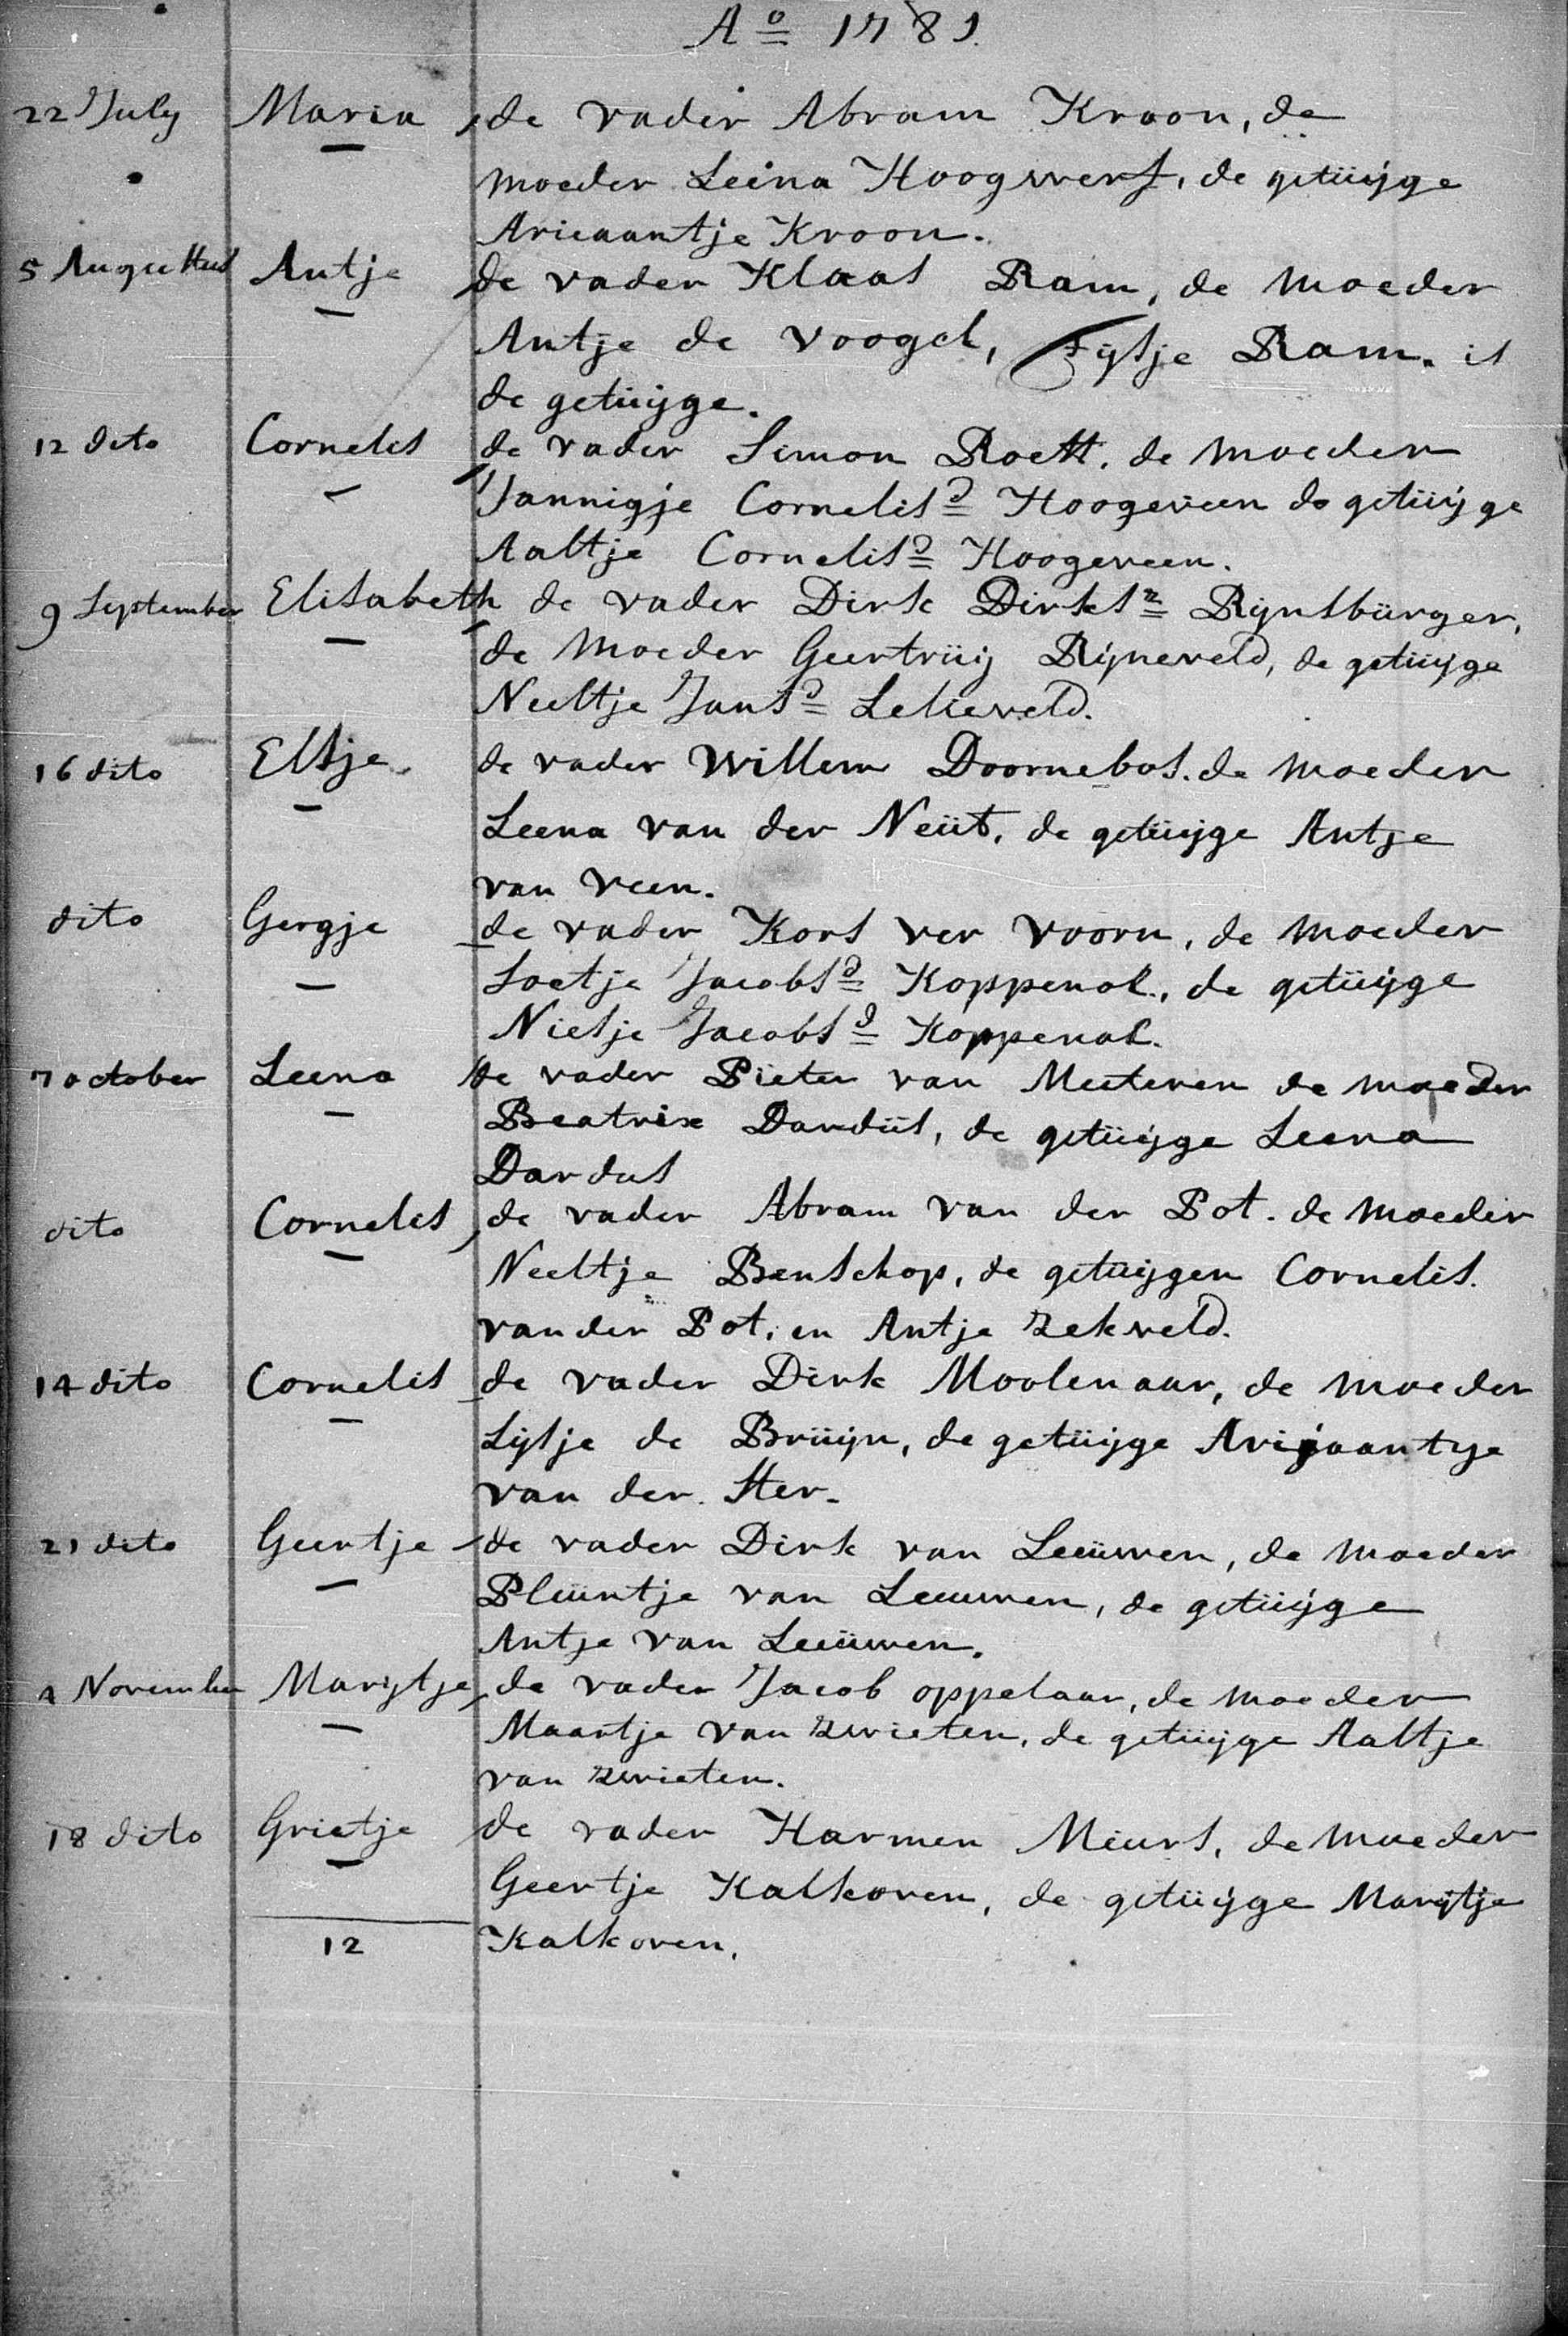 Ao 1781.
22 July Maria de vader Abram Kroon, de
moeder Leina Hoogwerf, de getüijge
Arieaantje Kroon.
5 Augustus Antje de vader Klaas Ram, de moeder
Antje de voogel, Fijtje Ram. is
de getüijge.
12 dito Cornelis de vader Simon Roest. de moeder
Jannigje Cornelisd Hoogeveen de getüijge
Aaltje Cornelisd Hoogeveen.
9 September Elisabeth de vader Dirk Dirksz Rijnsbürger,
de Moeder Geertrüij Rijneveld, de getüijge
Neeltje Jansd Lelieveld.
16 dito Elsje de vader Willem Doornebos. de moeder
Leena van der Neüt, de getüijge Antje
van veen.
dito Gergje de vader Kors ver voorn, de moeder
Soetje Jacobsd Koppenol, de getüijge
Niesje Jacobsd Koppenol.
7 october Leena de vader Pieter van Meeteren de moeder
Beatrix Dardüs, de getüijge Leena
Dardus
dito Cornelis, de vader Abram van der Pot. de moeder
Neeltje Benschop, de getüijgen Cornelis.
vander Pot. en Antje zekveld.
14 dito Cornelis de vader Dirk Moolenaar, de moeder
Lijsje de Brüijn, de getüijge Arijaantje
van der. Ster.
21 dito Geertje de vader Dirk van Leeüwen, de moeder
Pleüntje van Leeuwen, de getüijge
Antje van Leeüwen.
4 November Marijtje, de vader Jacob oppelaar, de moeder
Maartje van zwieten, de getüijge Aaltje
van zwieten.
18 dito Grietje de vader Harmen Meurs, de moeder
Geertje Kalkoven, de getüijge Marijtje
12 Kalkoven.